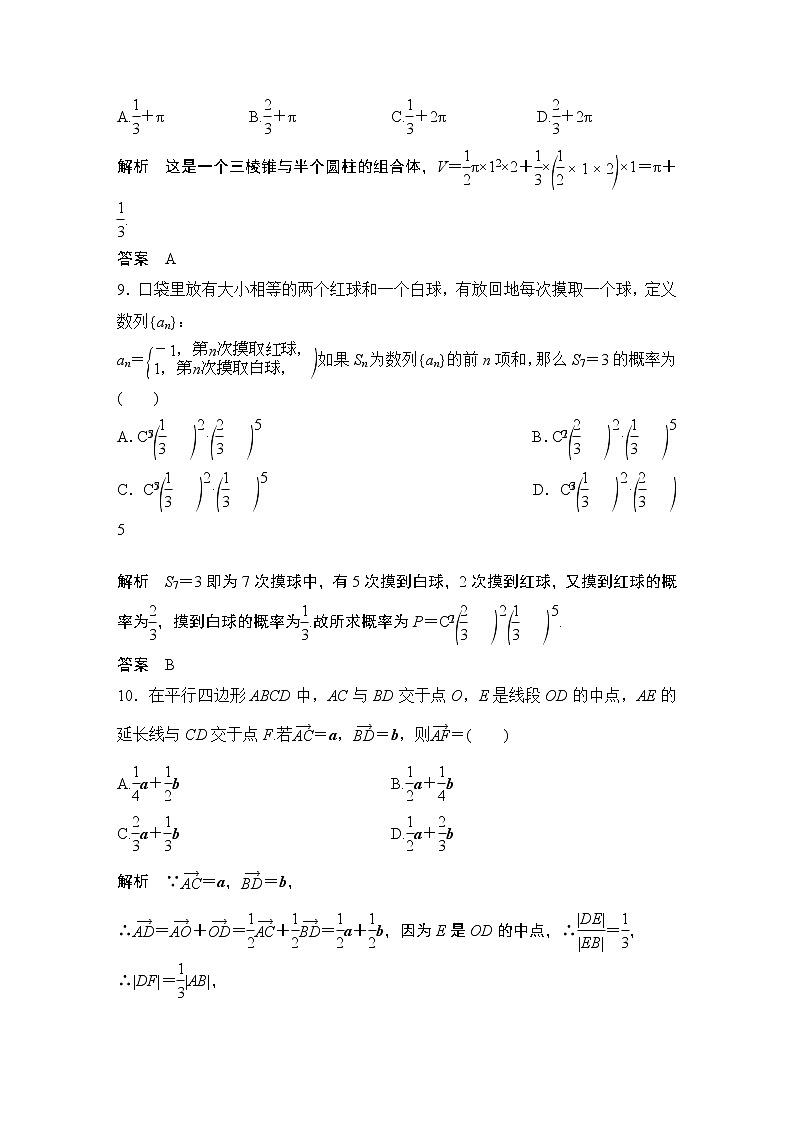 A.1/3+π B.2/3+π C.1/3+2π D.2/3+2π
解析 这是一个三棱锥与半个圆柱的组合体，V=1/2π×1²×2+1/3×(1/2×1×2)×1=π+
1/3.
答案 A
9．口袋里放有大小相等的两个红球和一个白球，有放回地每次摸取一个球，定义
数列{aₙ}：
aₙ={－1，第n次摸取红球， 1，第n次摸取白球， )如果 Sₙ为数列{aₙ}的前 n 项和，那么 S₇=3 的概率为
( )
A．C(1/3 )2·(2/3 )5 B．C(2/3 )2·(1/3 )5
C．C(1/3 )2·(1/3 )5 D．C(1/3 )2·(2/3 )
5
解析 S₇=3 即为 7 次摸球中，有 5 次摸到白球，2 次摸到红球，又摸到红球的概
率为2/3，摸到白球的概率为1/3.故所求概率为 P=C(2/3 )2(1/3 )5.
答案 B
10．在平行四边形 ABCD 中，AC 与 BD 交于点 O，E 是线段 OD 的中点，AE 的
延长线与 CD 交于点 F.若AC→=a，BD→=b，则AF→=( )
A.1/4a+1/2b B.1/2a+1/4b
C.2/3a+1/3b D.1/2a+2/3b
解析 ∵AC→=a，BD→=b，
∴AD→=AO→+OD→=1/2AC→+1/2BD→=1/2a+1/2b，因为 E 是 OD 的中点，∴|DE|/|EB|=1/3，
∴|DF|=1/3|AB|，